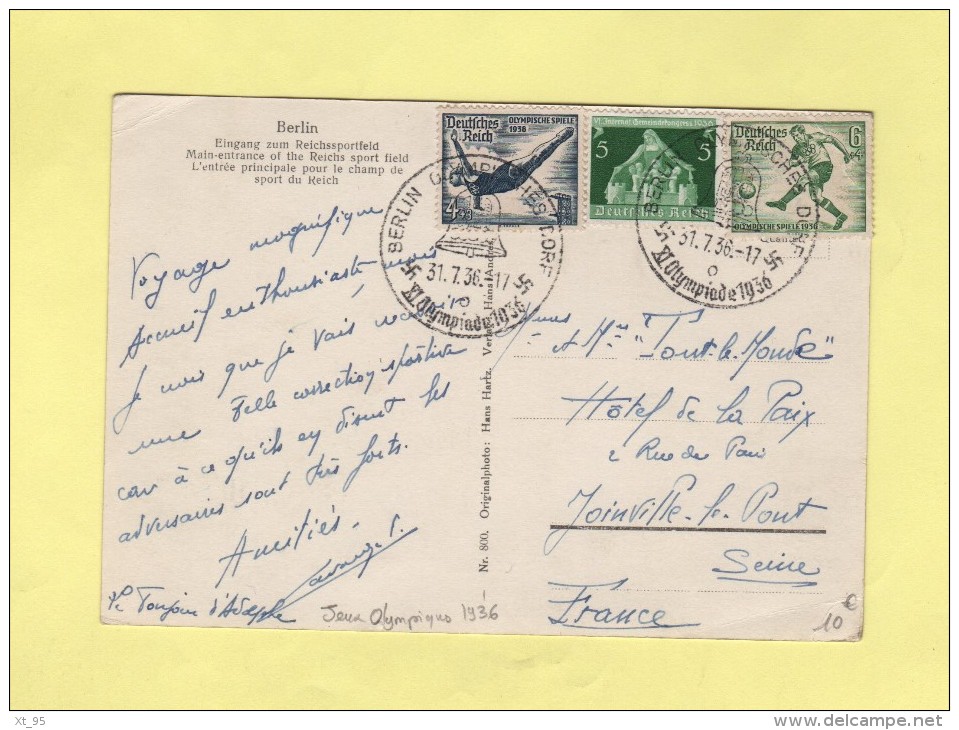 Berlin
Eingang zum Reichssportfeld
Main-entrance of the Reichs sport field
L'entrée principale pour le champ de
sport du Reich
Voyage magnifique
Accueil enthousiaste mais
je crois que je vais recevoir
une belle correction sportive
car à ce qu'ils en disent les
adversaires sont très forts.
Amitiés.
Jeux Olympiques 1936
Nr. 800. Originalphoto: Hans Hartz. Verlag Hans Andres
Deutsches
Reich
OLYMPISCHE SPIELE
1936
4+3
VI. Internat. Gemeindekongress 1936
5
5
Deutsches Reich
Deutsches
Reich
6
+4
OLYMPISCHE SPIELE 1936
BERLIN OLYMPISCHES DORF
31.7.36.-17
XI. Olympiade 1936
BERLIN OLYMPISCHES DORF
31.7.36.-17
XI. Olympiade 1936
"Tout-le-Monde"
Hôtel de la Paix
2 Rue de Paris
Joinville-le-Pont
Seine
France
10
Xt_95
delcampe.net